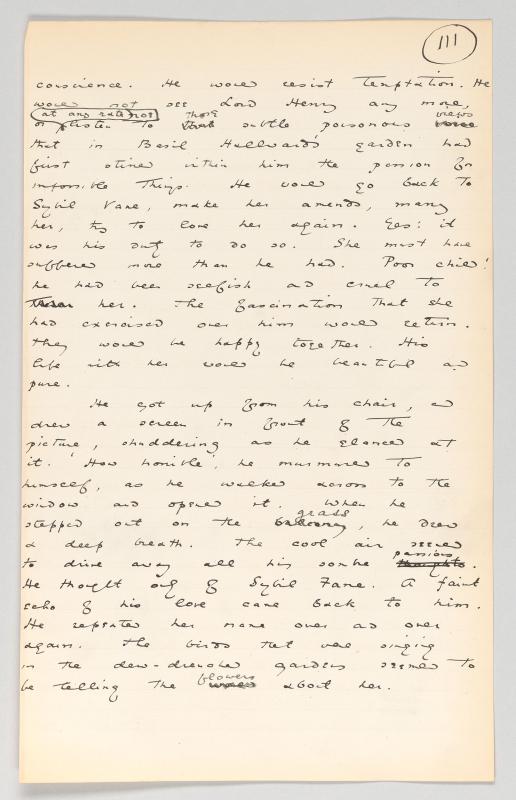 111
conscience. He would resist temptation. He
would not see Lord Henry any more,
at any rate not those voices
or listen to that subtle poisonous
that in Basil Hallward's garden had
first stirred within him the passion for
impossible things. He would go back to
Sybil Vane, make her amends, marry
her, try to love her again. Yes: it
was his duty to do so. She must have
suffered more than he had. Poor child!
he had been selfish and cruel to
her. The fascination that she
had exercised over him would return.
They would be happy together. His
life with her would be beautiful and
pure.
He got up from his chair, and
drew a screen in front of the
picture, shuddering as he glanced at
it. 'How horrible', he murmured to
himself, as he walked across to the
window and opened it. When he
grass
stepped out on the balcony, he drew
a deep breath. The cool air seemed
passions
to drive away all his sombre thoughts.
He thought only of Sybil Vane. A faint
echo of his love came back to him.
He repeated her name over and over
again. The birds that were singing
in the dew-drenched gardens seemed to
flowers
be telling the about her.